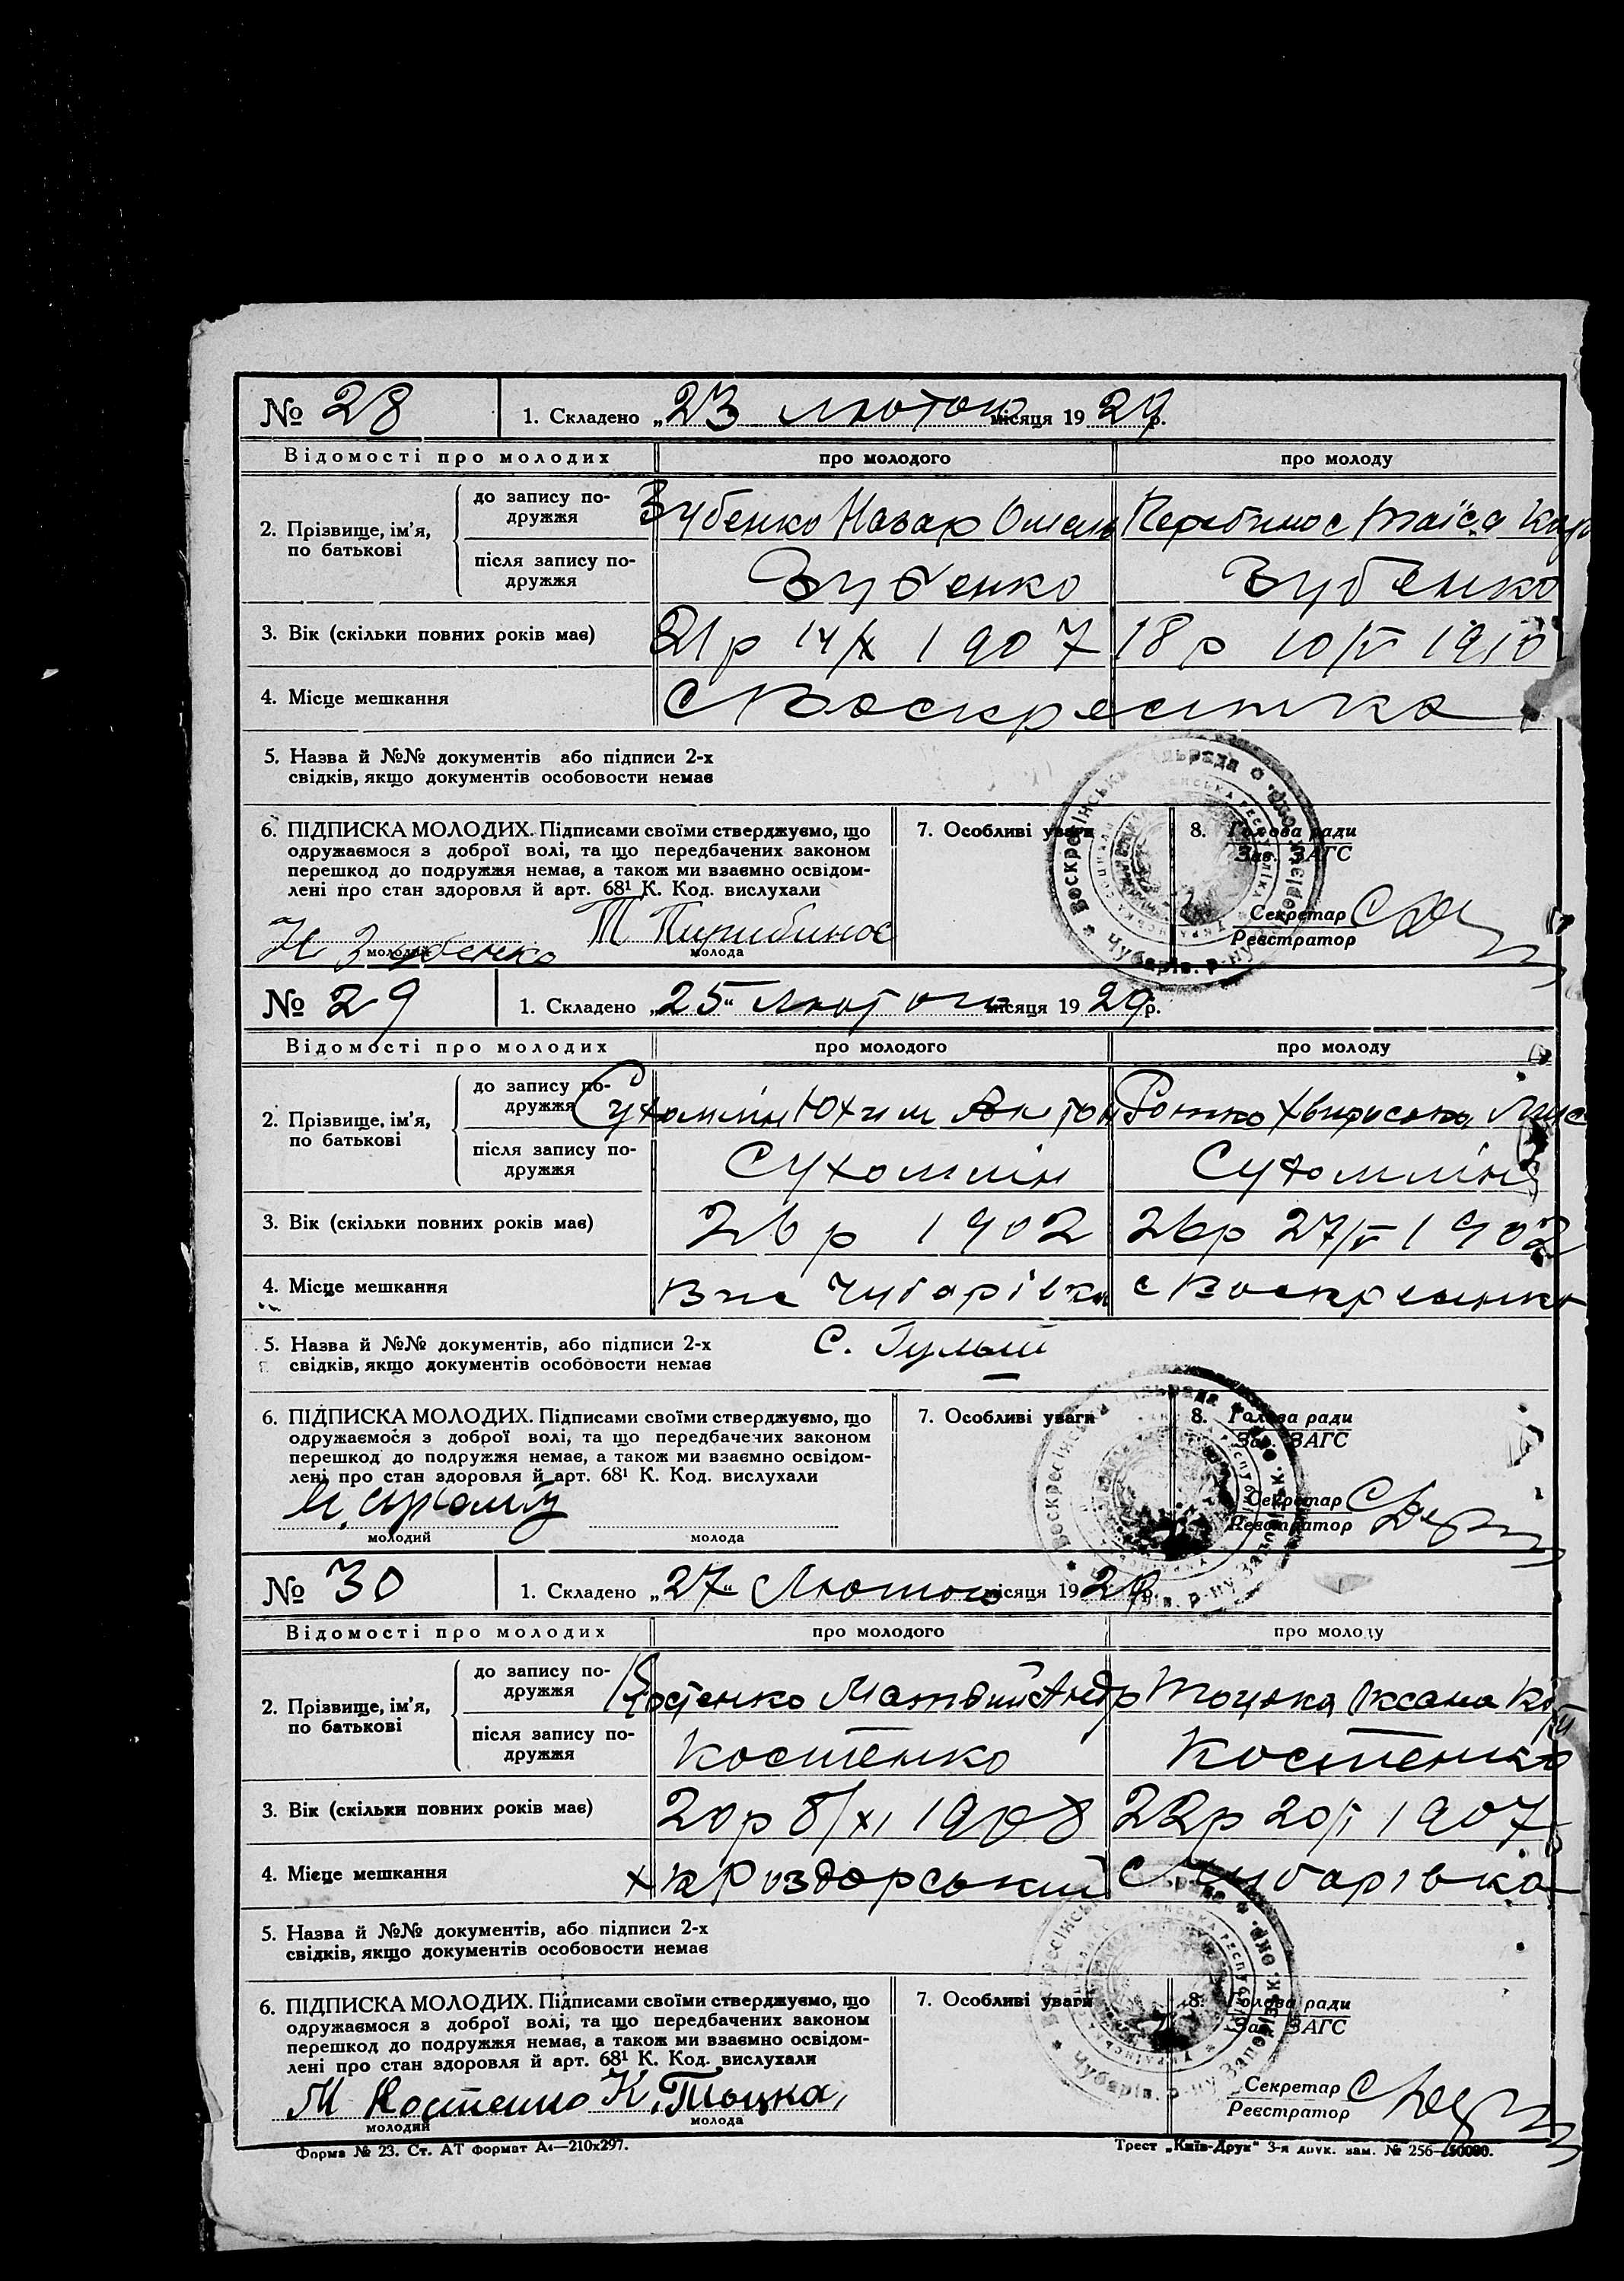 № 28 1. Складено „23 лютого місяця 1929 р.
Відомості про молодих про молодого про молоду
2. Прізвище, ім’я, по батькові
до запису по-
дружжя Зубенко Назар Омель Перебинос Таїса Кир
після запису по-
дружжя Зубенко Зубенко
3. Вік (скільки повних років має) 21 р 14/X 1907 18 р 10/V 1910
4. Місце мешкання С Воскресенка
5. Назва й №№ документів або підписи 2-х
свідків, якщо документів особовости немає
6. ПІДПИСКА МОЛОДИХ. Підписами своїми стверджуємо, що
одружаємося з доброї волі, та що передбачених законом
перешкод до подружжя немає, а також ми взаємно освідом-
лені про стан здоровля й арт. 68¹ К. Код. вислухали
7. Особливі уваги
8. Голова ради
Зав. ЗАГС
Секретар
Реєстратор
Н Зубенко Т Пирибинос
молодий молода
№ 29 1. Складено „25“ Лютого місяця 1929 р.
Відомості про молодих про молодого про молоду
2. Прізвище, ім’я, по батькові
до запису по-
дружжя Сухомлін Юхим Антон
після запису по-
дружжя Сухомлін Сухомлін
3. Вік (скільки повних років має) 26 р 1902 26 р 27/V 1902
4. Місце мешкання Чубарівка с Воскресенка
5. Назва й №№ документів, або підписи 2-х
свідків, якщо документів особовости немає
С. Гулый
6. ПІДПИСКА МОЛОДИХ. Підписами своїми стверджуємо, що
одружаємося з доброї волі, та що передбачених законом
перешкод до подружжя немає, а також ми взаємно освідом-
лені про стан здоровля й арт. 68¹ К. Код. вислухали
7. Особливі уваги
8. Голова ради
Зав. ЗАГС
Секретар
Реєстратор
молодий молода
№ 30 1. Складено „27“ Лютого місяця 1929 р.
Відомості про молодих про молодого про молоду
2. Прізвище, ім’я, по батькові
до запису по-
дружжя Костенко Матвий Андр Тоцька Оксана
після запису по-
дружжя Костенко Костенко
3. Вік (скільки повних років має) 20 р 8/XI 1908 22 р 20/I 1907
4. Місце мешкання Роздорський С Чубарівка
5. Назва й №№ документів, або підписи 2-х
свідків, якщо документів особовости немає
6. ПІДПИСКА МОЛОДИХ. Підписами своїми стверджуємо, що
одружаємося з доброї волі, та що передбачених законом
перешкод до подружжя немає, а також ми взаємно освідом-
лені про стан здоровля й арт. 68¹ К. Код. вислухали
7. Особливі уваги
8. Голова ради
Зав. ЗАГС
Секретар
Реєстратор
М Костенко К. Тоцка
молодий молода
Форма № 23. Ст. АТ формат А4—210x297. Трест „Київ-Друк“ 3-я друк. зам. № 256—50000.